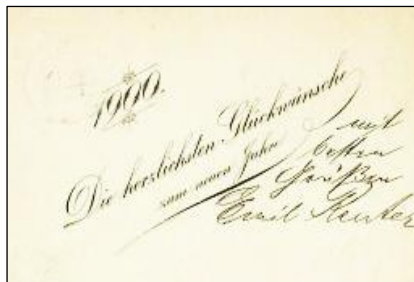 1900.
Die herzlichsten Glückwünsche
zum neuen Jahre
mit
besten
Grüßen
Emil Reuter